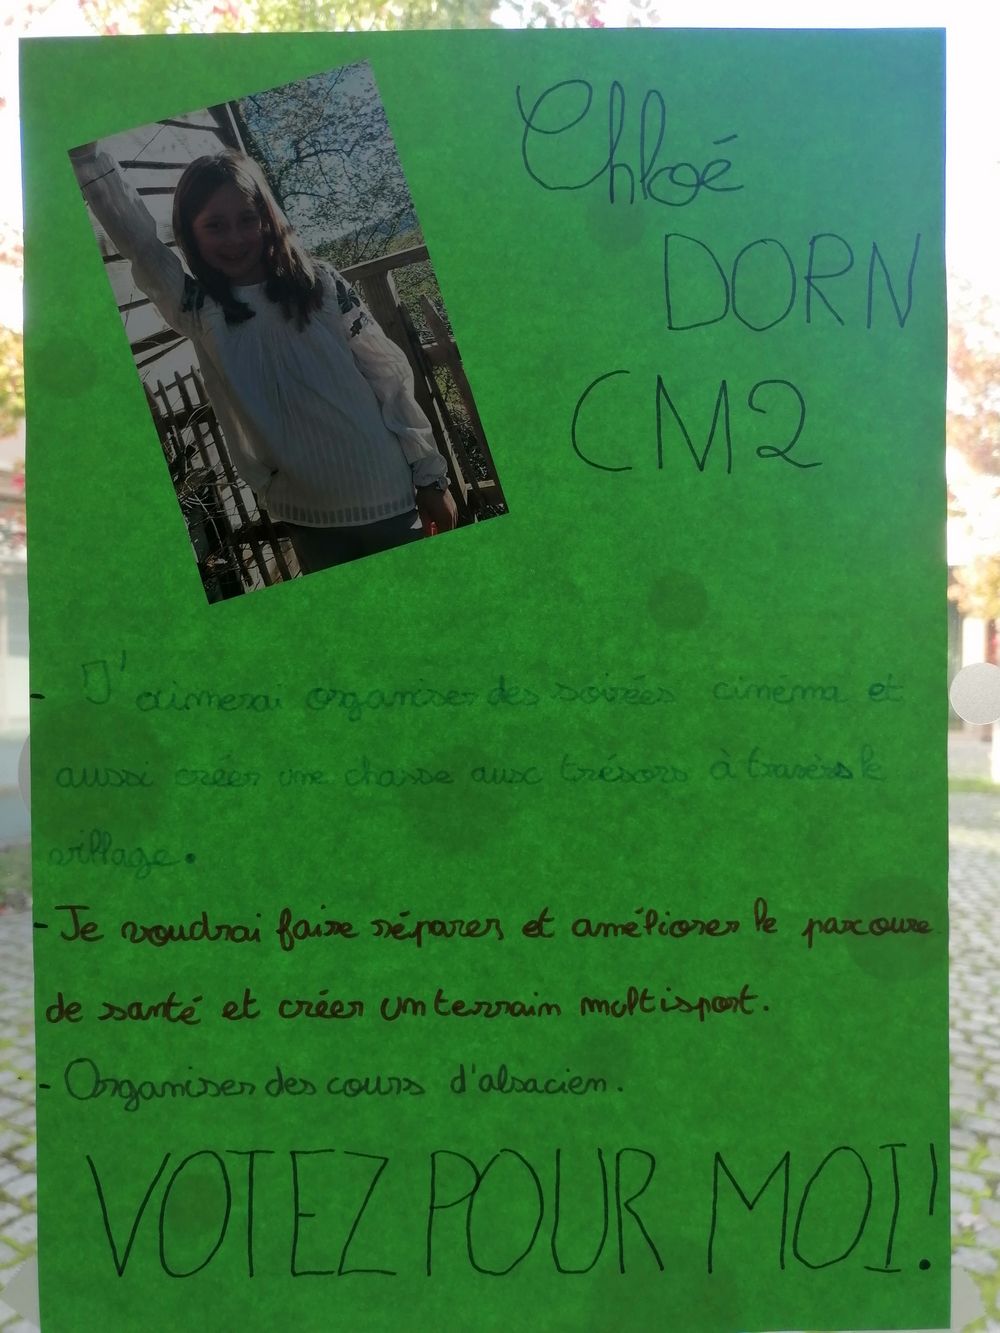 Chloé
DORN
CM2
- J'aimerai organiser des soirées cinéma et
aussi créer une chasse aux trésors à travers le
village.
- Je voudrai faire réparer et améliorer le parcours
de santé et créer un terrain multisport.
- Organiser des cours d'alsacien.
VOTEZ POUR MOI!